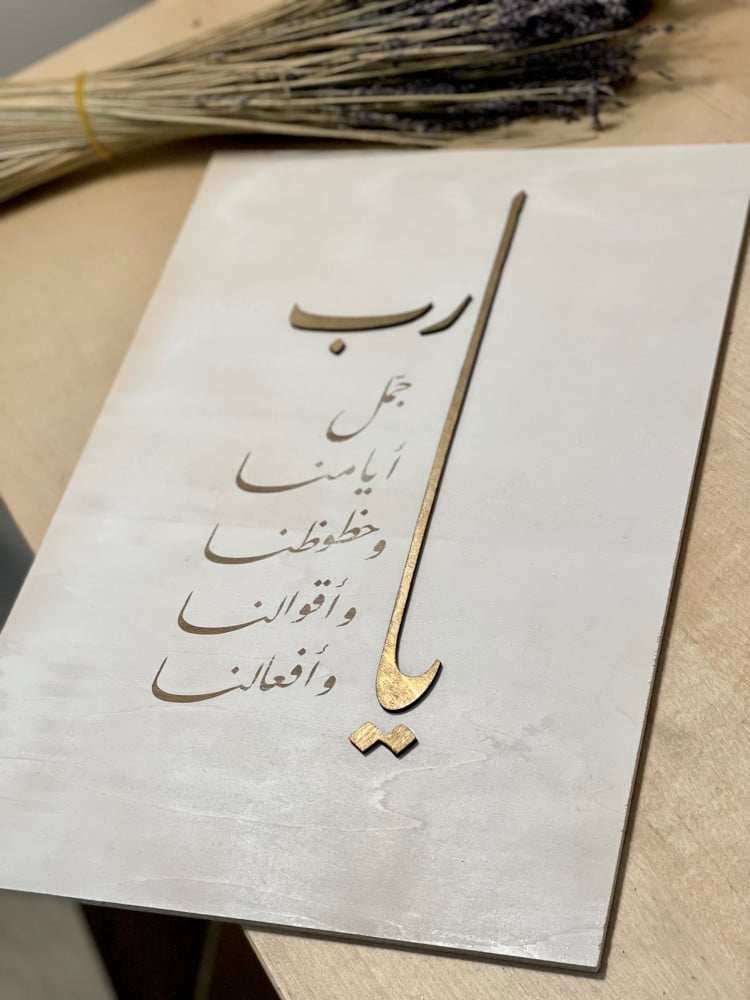 يا رب
جمّل
أيامنا
وحظوظنا
وأقوالنا
وأفعالنا